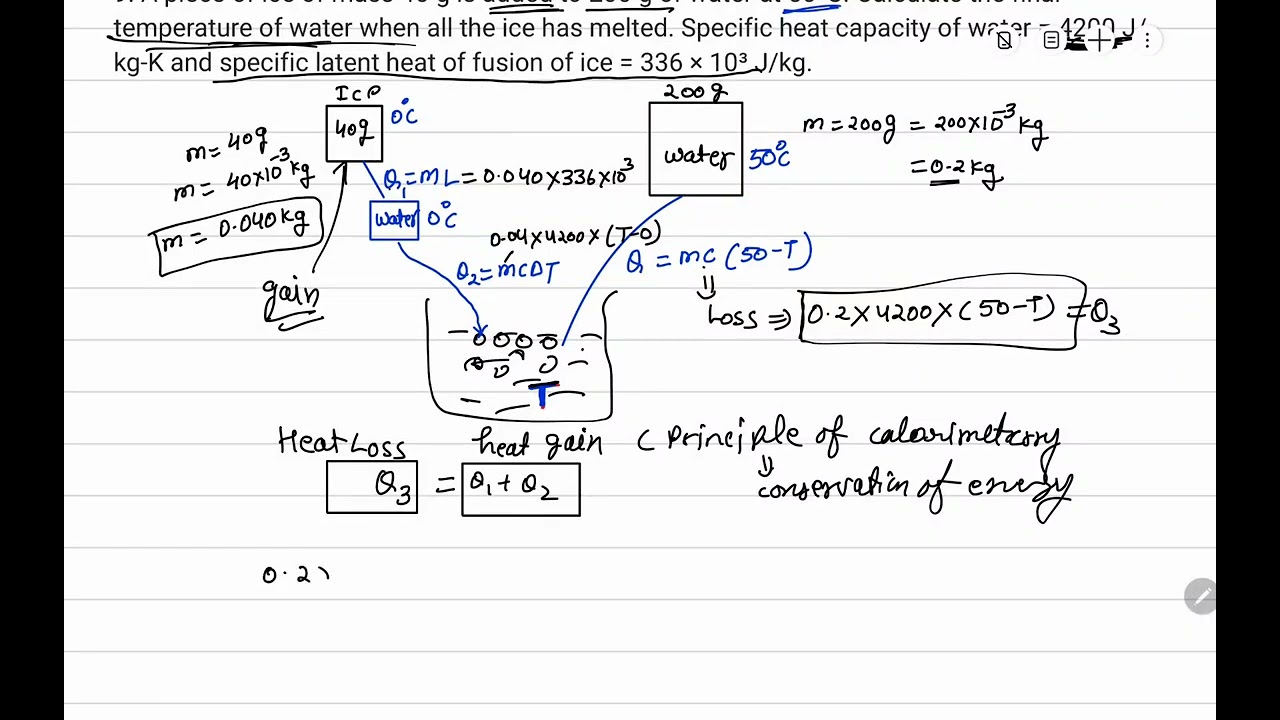 temperature of water when all the ice has melted. Specific heat capacity of water = 4200 J/
kg-K and specific latent heat of fusion of ice = 336 × 10³ J/kg.
Ice
40g
0°C
m = 40g
m = 40×10⁻³ kg
m = 0.040kg
gain
Q₁ = mL = 0.040×336×10³
water 0°C
0.04×4200×(T-0)
Q₂ = mCΔT
200g
water
50°C
m = 200g = 200×10⁻³ kg
= 0.2kg
Q = mc (50-T)
Loss ⇒ 0.2×4200×(50-T) = Q₃
T
Heat Loss heat gain ( Principle of calorimetry
Q₃ = Q₁ + Q₂
conservation of energy
0.2